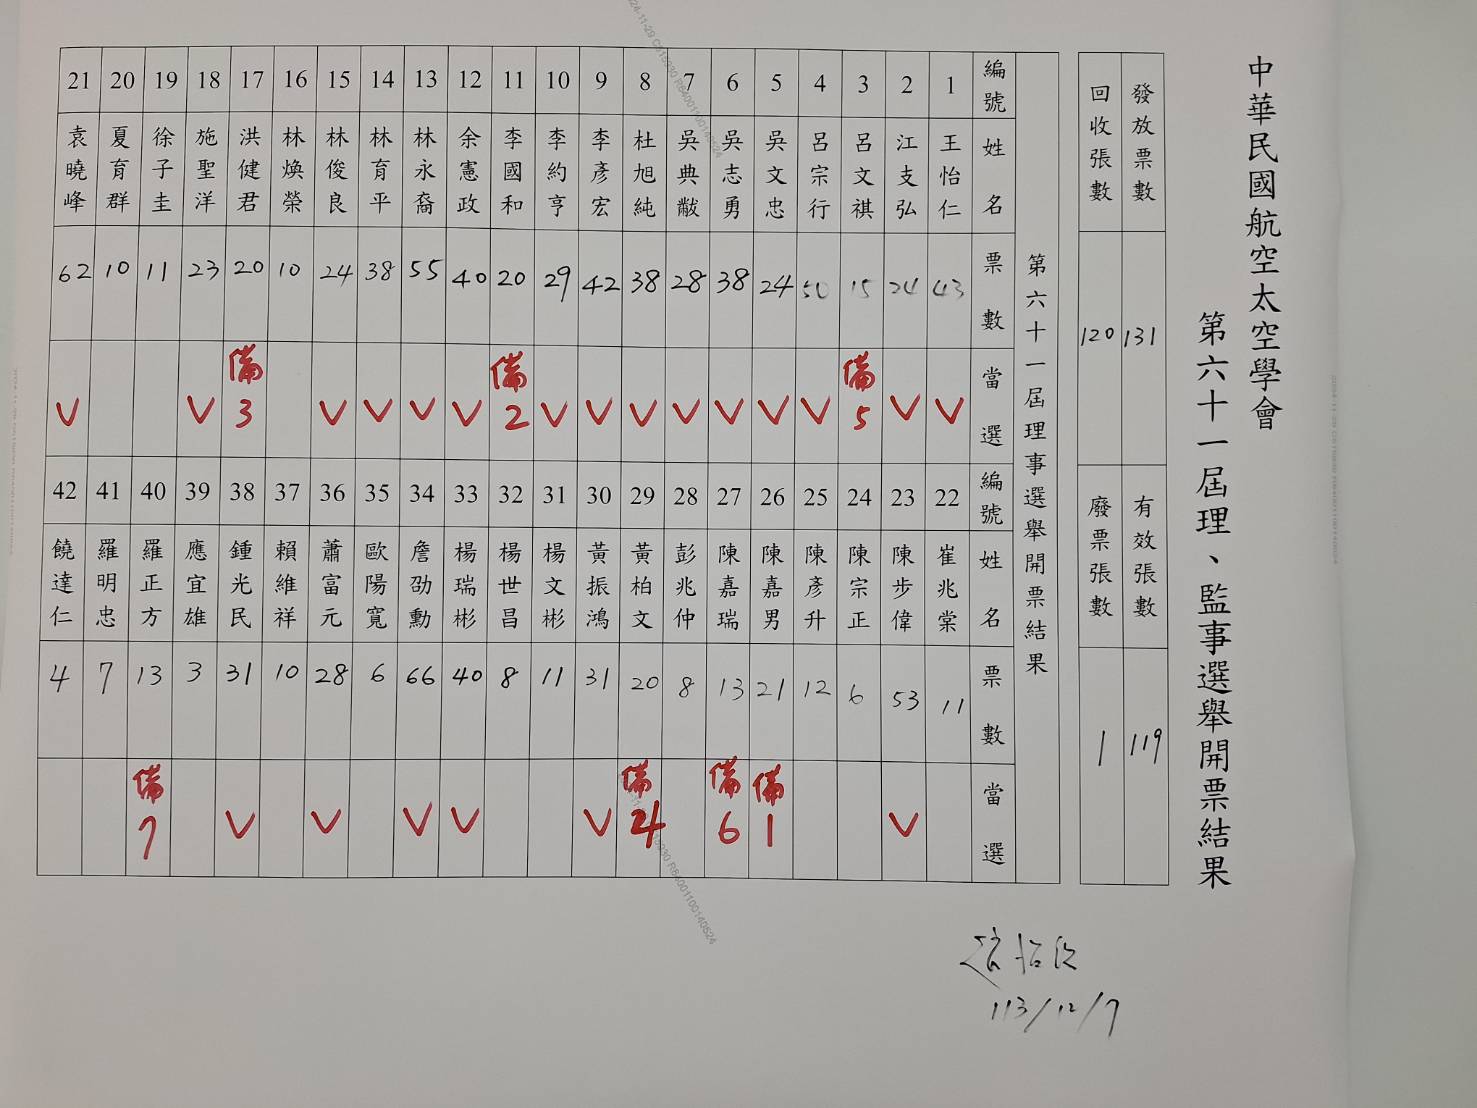 中華民國航空太空學會
第六十一屆理、監事選舉開票結果
發放票數 131 有效張數 119
回收張數 120 廢票張數 1
第六十一屆理事選舉開票結果
編號 姓名 票數 當選 編號 姓名 票數 當選
1 王怡仁 43 V 22 崔兆棠 11
2 江支弘 24 V 23 陳步偉 53 V
3 呂文祺 15 備5 24 陳宗正 6
4 呂宗行 50 V 25 陳彥升 12
5 吳文忠 24 V 26 陳嘉男 21 備1
6 吳志勇 38 V 27 陳嘉瑞 13 備6
7 吳典黻 28 V 28 彭兆仲 8
8 杜旭純 38 V 29 黃柏文 20 備4
9 李彥宏 42 V 30 黃振鴻 31 V
10 李約亨 29 V 31 楊文彬 11
11 李國和 20 備2 32 楊世昌 8
12 余憲政 40 V 33 楊瑞彬 40 V
13 林永裔 55 V 34 詹劭勳 66 V
14 林育平 38 V 35 歐陽寬 6
15 林俊良 24 V 36 蕭富元 28 V
16 林煥榮 10 37 賴維祥 10
17 洪健君 20 備3 38 鍾光民 31 V
18 施聖洋 23 V 39 應宜雄 3
19 徐子圭 11 40 羅正方 13 備7
20 夏育群 10 41 羅明忠 7
21 袁曉峰 62 V 42 饒達仁 4
113/12/7